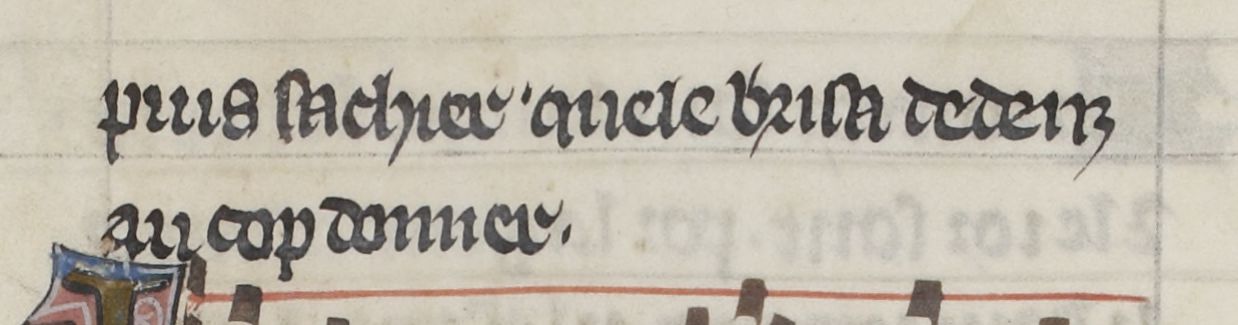 puis sachier quele brisa dedenz
au cop donner.